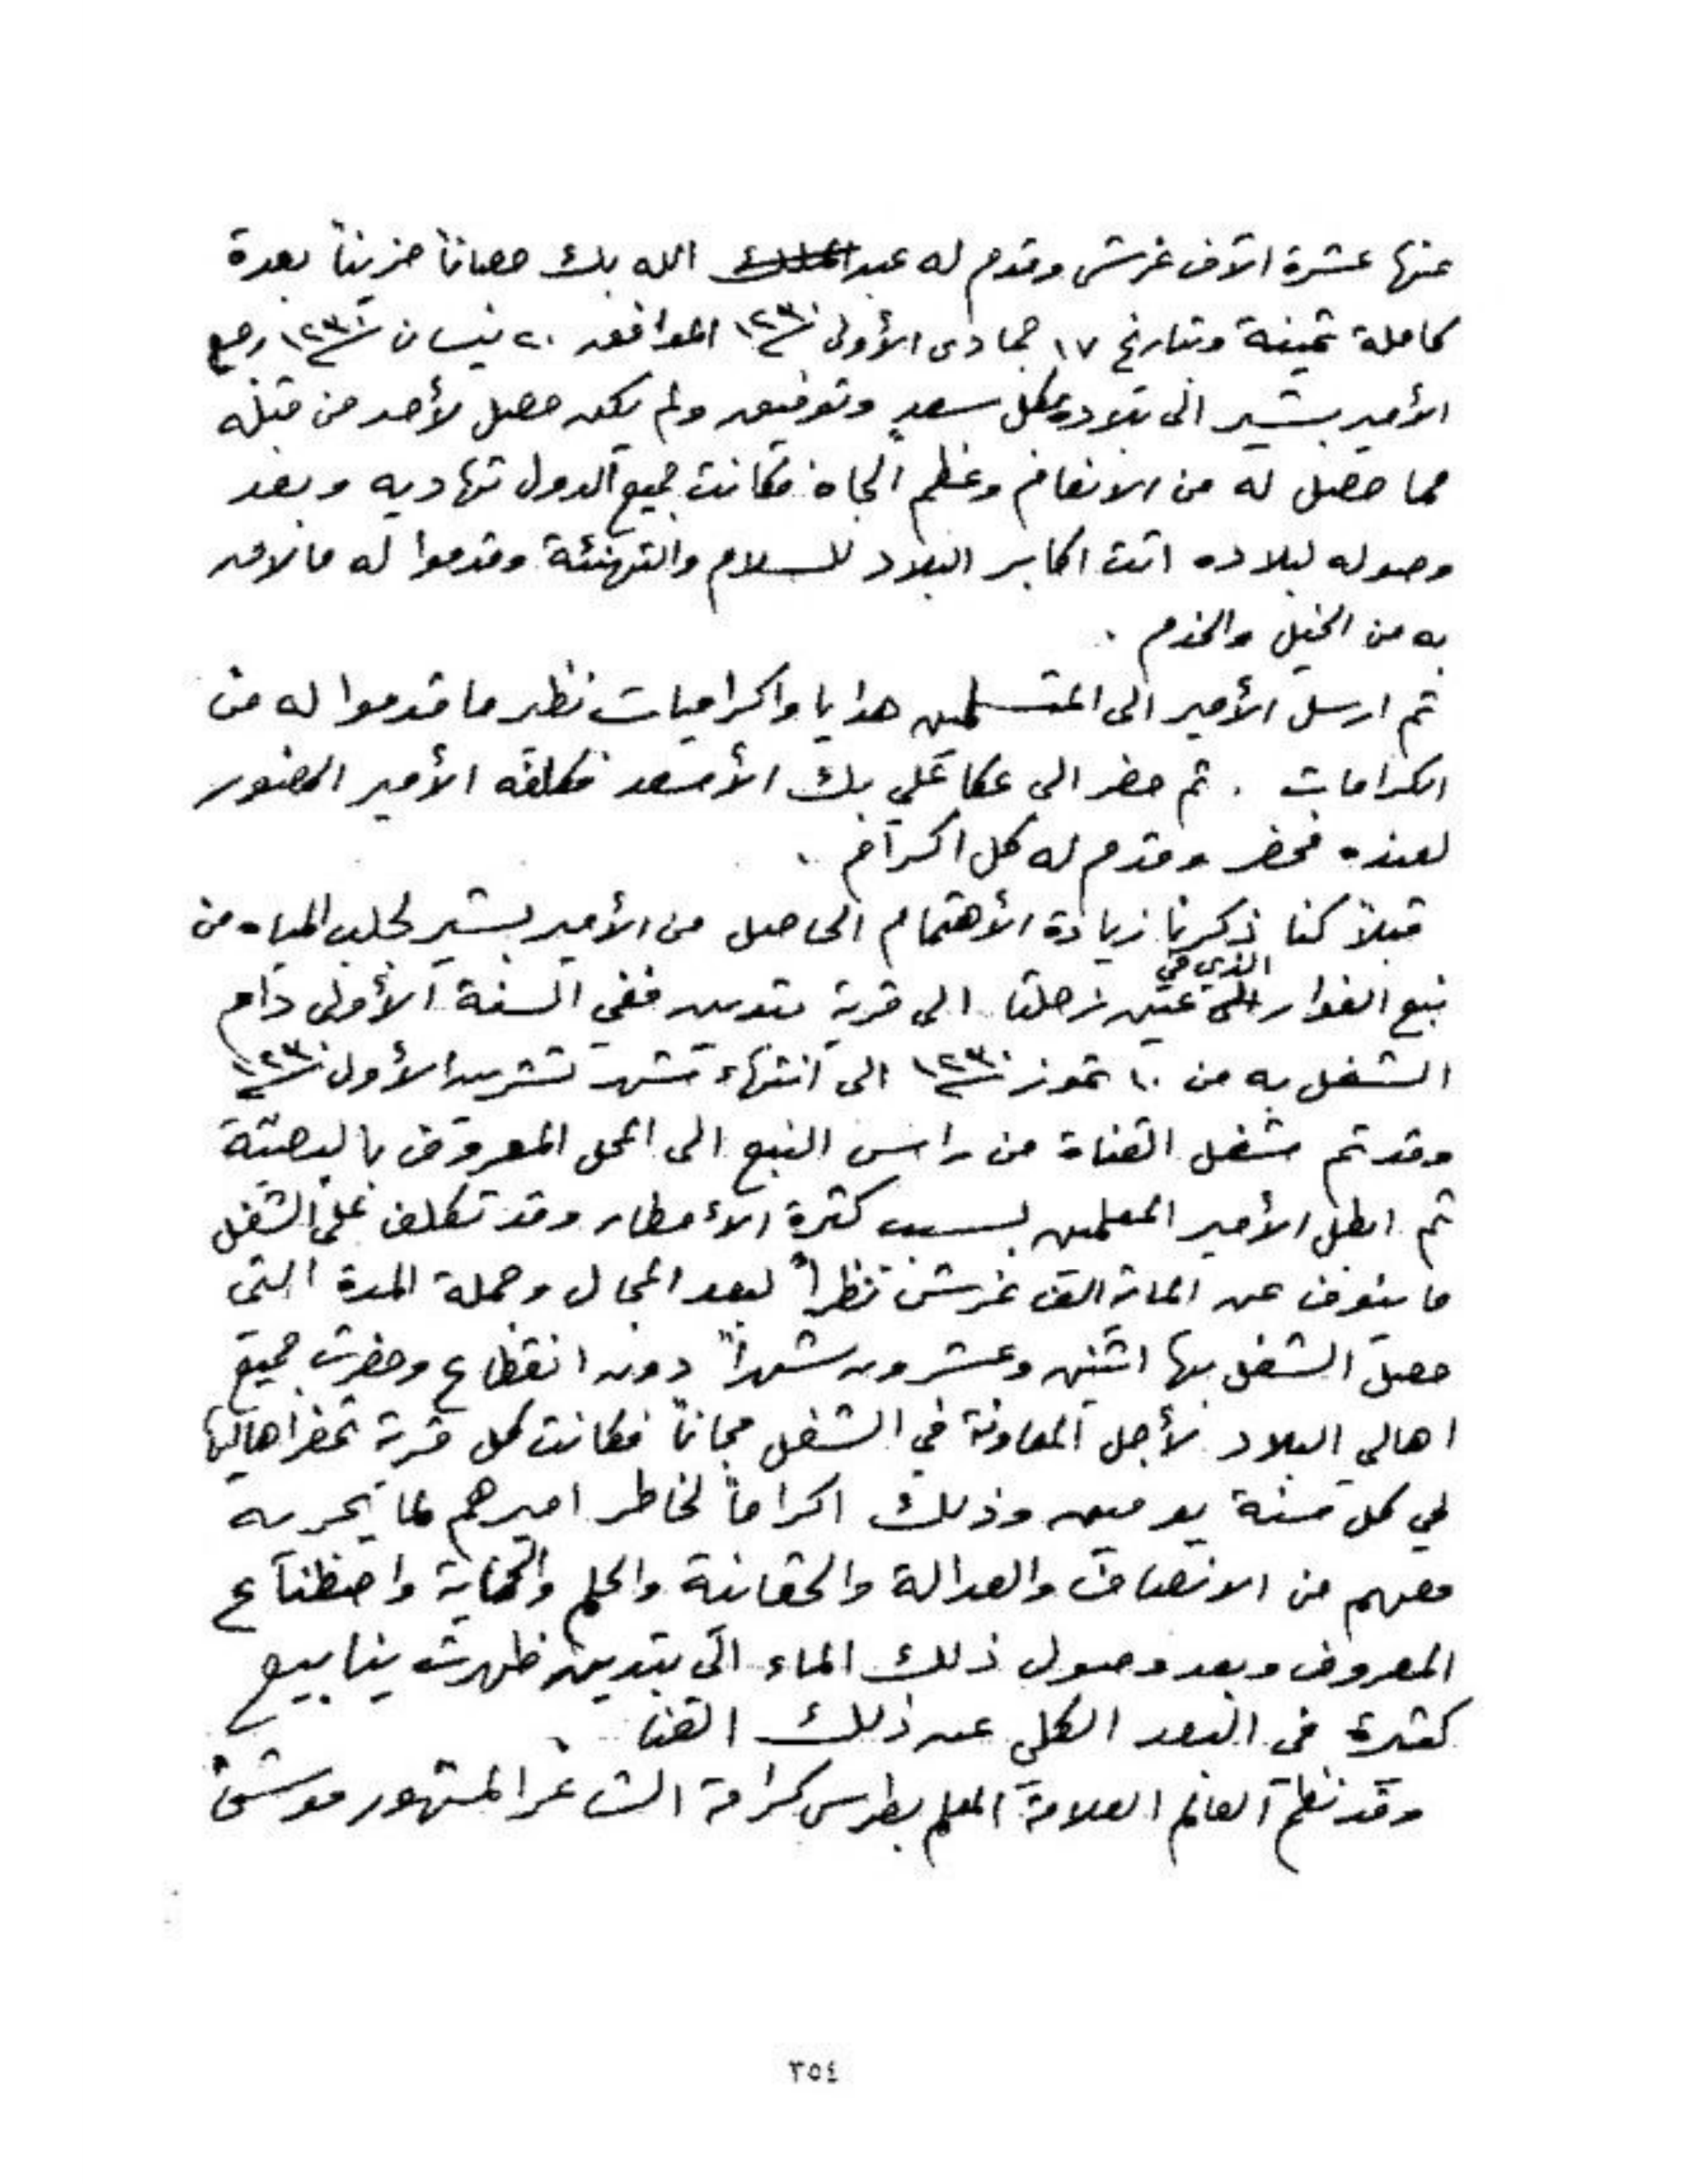 عنها عشرة الآف غرش وقدم له عبد الله بك حصاناً مزيناً بعدة
كاملة ثمينة وبتاريخ ١٧ جمادى الأولى ١٢٣٠ الموافق ٢٠ نيسان ١٢٣٠ رجع
الأمير بشير الى بلاده بكل سعدٍ وتوفيق ولم يكن حصل لأحد من قبله
مما حصل له من الانعام وعظم الجاه فكانت جميع الدول تهاديه وبعد
وصوله لبلاده اتت اكابر البلاد للسلام والتهنئة وقدموا له مالاق
به من الخيل والخدم .
ثم ارسل الأمير الى المتسلمين هدايا واكراميات نظير ما قدموا له من
الكرامات . ثم حضر الى عكا علي بك الأسعد فكلفه الأمير الحضور
لعنده فحضر وقدم له كل اكرام .
قبلاً كنا ذكرنا زيادة الأهتمام الحاصل من الأمير بشير لجلب المياه من
نبع الفوار الذي في عين زحلتا الى قرية بتدين ففي السنة الأولى دام
الشغل به من ١٠ تموز ١٢٣٠ الى انتهاء شهر تشرين الأول ١٢٣٠
وقد تم شغل القناة من راس النبع الى المحل المعروف
ثم ابطل الأمير المعلمين بسبب كثرة الأمطار وقد تكلف على الشغل
ما ينوف عن الماية الف غرش نظراً لبعد المجال وجملة المدة التي
حصل الشغل بها اثنين وعشرون شهراً دون انقطاع وحضرت جميع
اهالي البلاد لأجل المعاونة في الشغل مجاناً فكانت كل قرية تحضر اهاليها
في كل سنة يومين وذلك اكراماً لخاطر اميرهم لما يجريه
معهم من الانصاف والعدالة والحقانية والحلم والحماية واصطناع
المعروف وبعد وصول ذلك الماء الى بتدين ظهرت ينابيع
كثيرة في البعد الكلي عن ذلك القنا .
وقد نظم العالم العلامة المعلم بطرس كرامة الشاعر المشهور موشح
٣٥٤